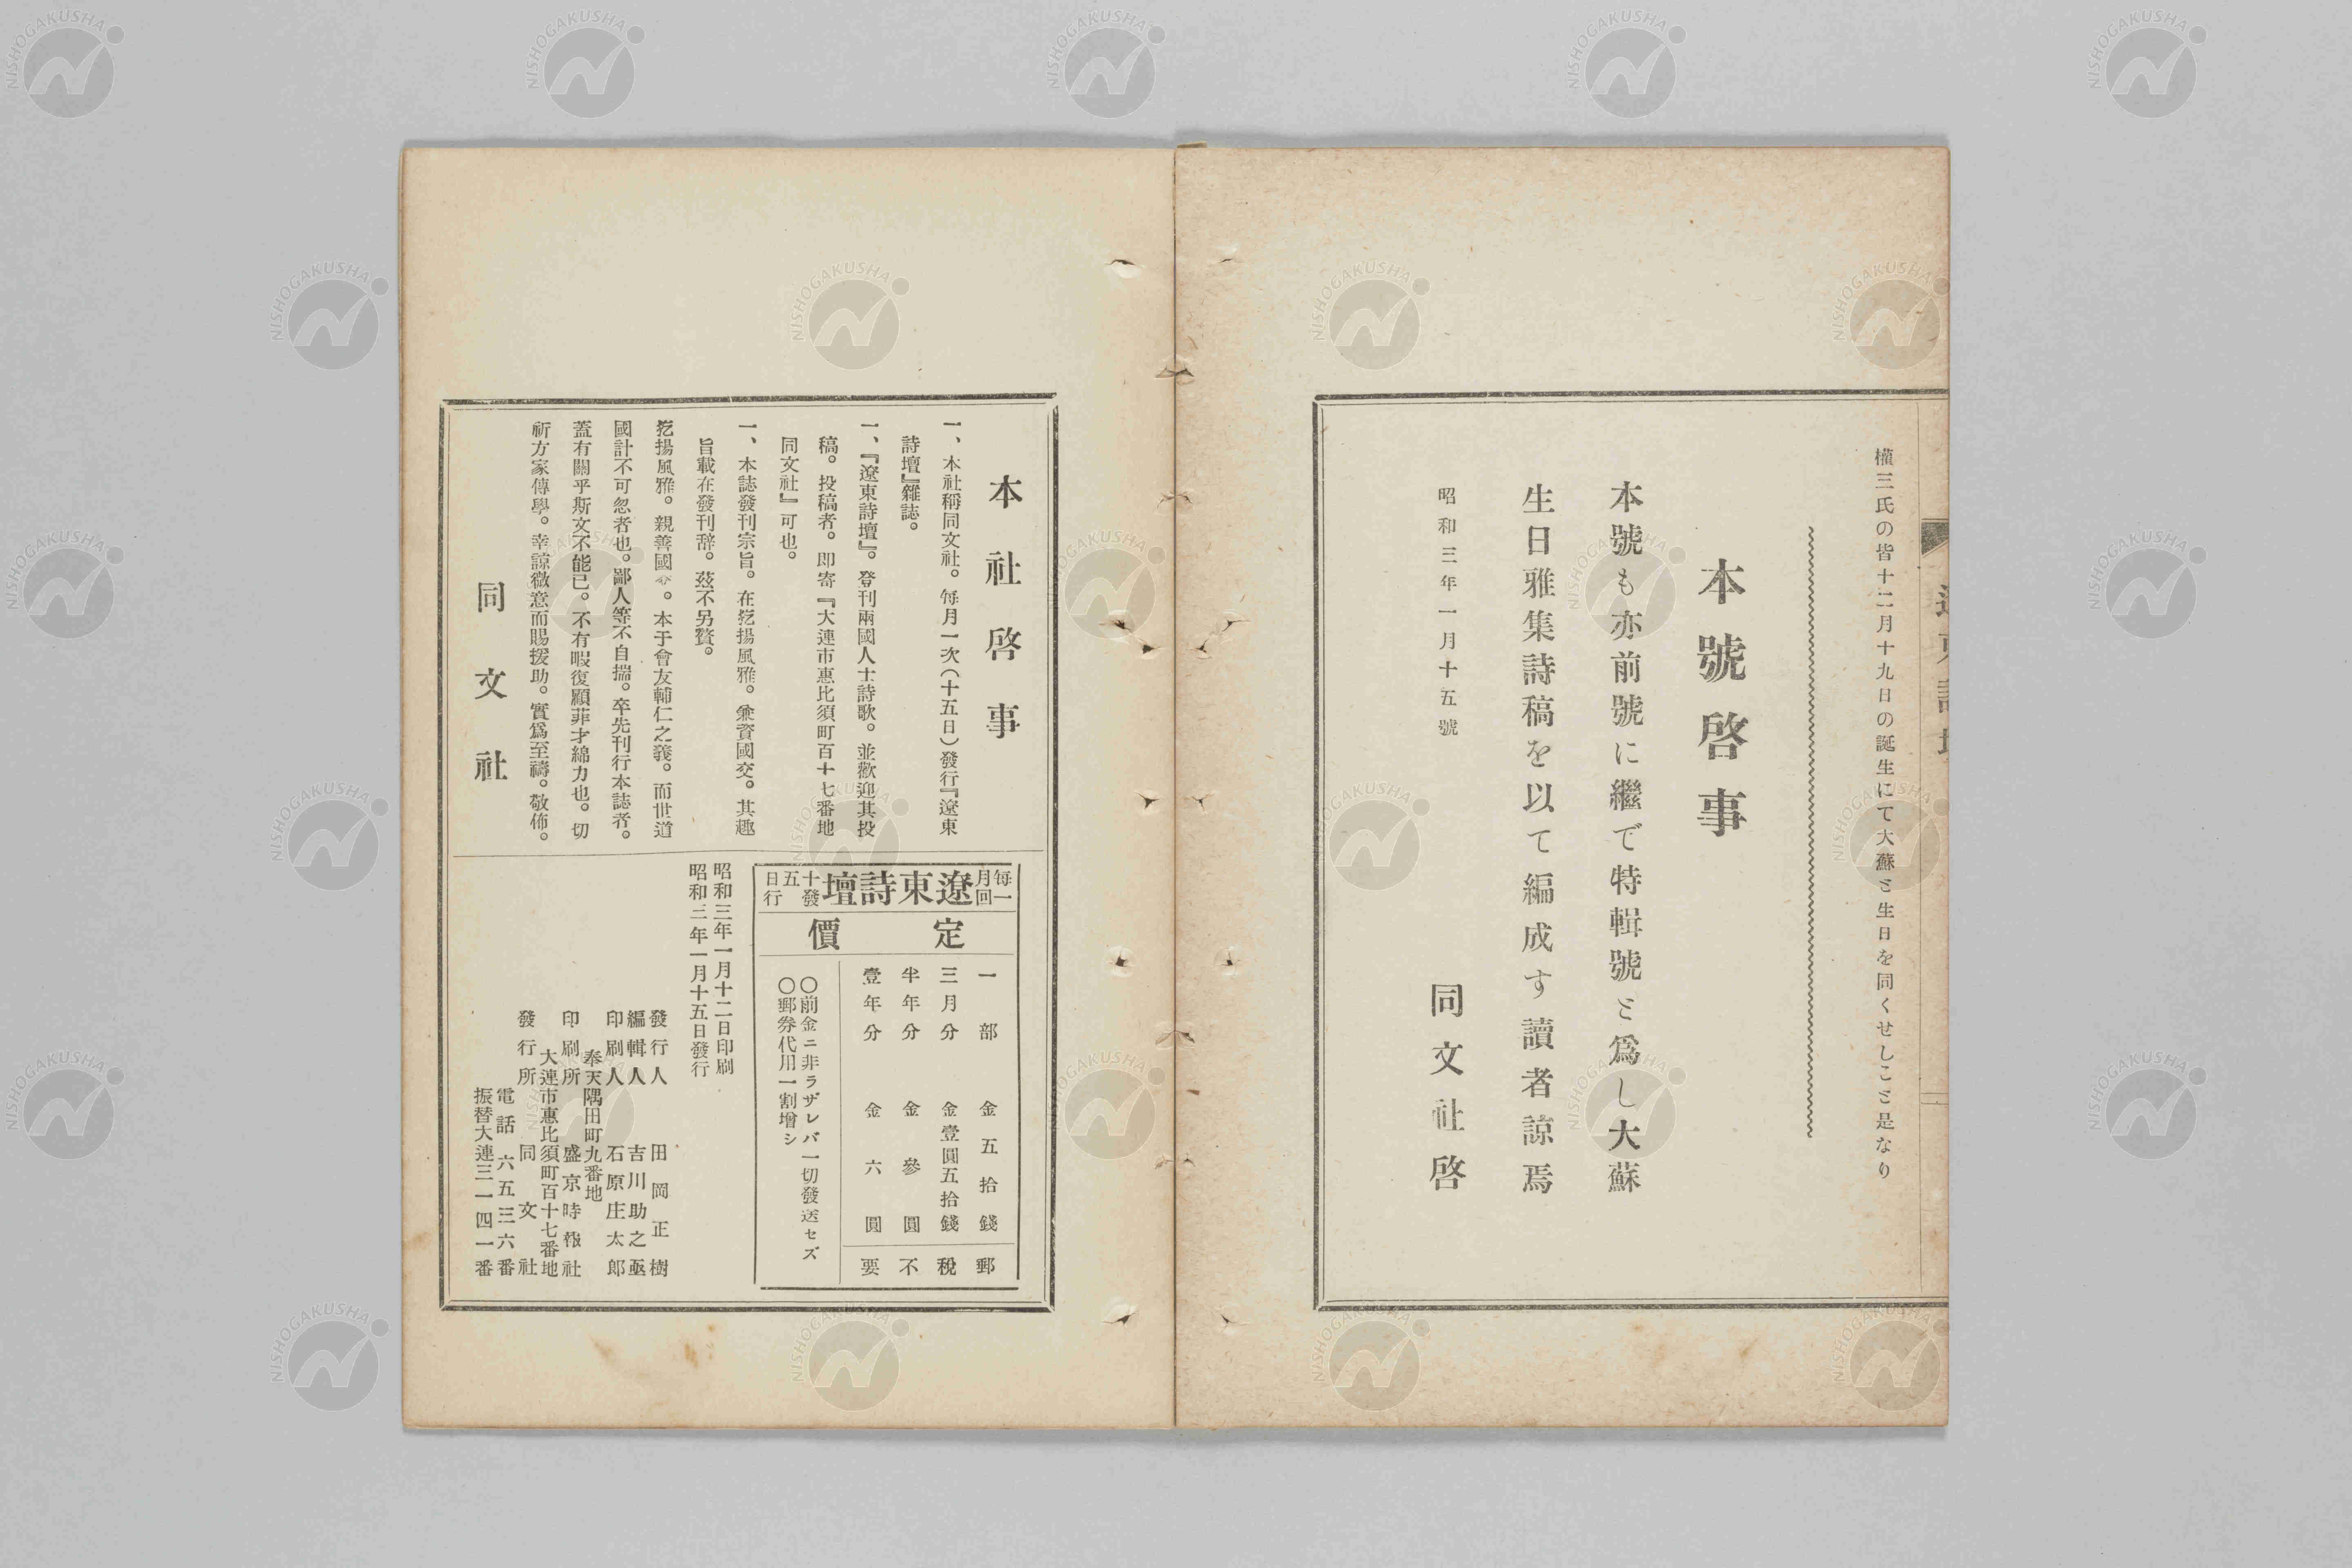 權三氏の皆十二月十九日の誕生にて大蘇と生日を同くせしこと是なり
本號啓事
本號も亦前號に繼で特輯號と爲し大蘇
生日雅集詩稿を以て編成す讀者諒焉
昭和三年一月十五號
同文社啓
本社啓事
一、本社稱同文社。每月一次(十五日)發行『遼東
詩壇』雜誌。
一、『遼東詩壇』。登刊兩國人士詩歌。並歡迎其投
稿。投稿者。卽寄『大連市惠比須町百十七番地
同文社』可也。
一、本誌發刊宗旨。在扢揚風雅。兼資國交。其趣
旨載在發刊辞。茲不另贅。
扢揚風雅。親善國。本于會友輔仁之義。而世道
國計不可忽者也。鄙人等不自揣。卒先刊行本誌者。
蓋有關乎斯文不能已。不有暇復顧菲才綿力也。切
祈方家傳學。幸諒微意而賜援助。實爲至禱。敬佈。
同文社
每月一回
遼東詩壇
十五日發行
定價
一部 金五拾錢 郵
三月分 金壹圓五拾錢 稅
半年分 金參圓 不
壹年分 金六圓 要
○前金ニ非ラザレバ一切發送セズ
○郵券代用一割增シ
昭和三年一月十二日印刷
昭和三年一月十五日發行
發行人 田岡正樹
編輯人 吉川助之亟
印刷人 石原庄太郎
奉天隅田町九番地
印刷所 盛京時報社
大連市惠比須町百十七番地
發行所 同文社
電話六五三六番
振替大連三一四一番
NISHOGAKUSHA